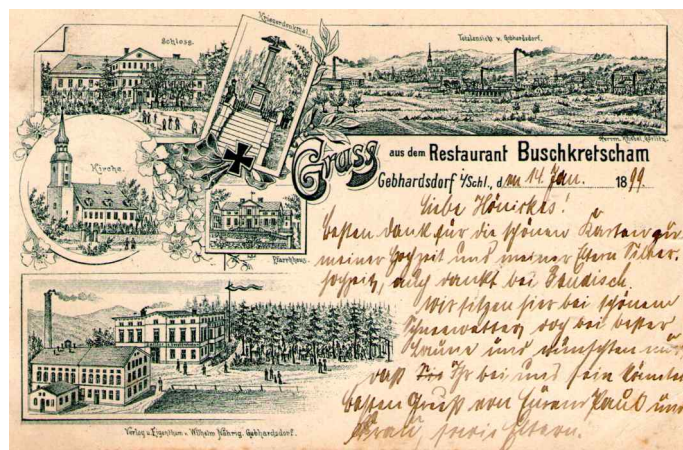 Schloss.
Kriegerdenkmal.
Totalansicht v. Gebhardsdorf.
Kirche.
Pfarrhaus.
Gruss
aus dem Restaurant Buschkretscham
Gebhardsdorf i/Schl., den 14. Jan. 1899.
Liebe
besten Dank für die schönen Karten zur
meiner Hochzeit und meiner Eltern Silber-
hochzeit, auch dankt bei
Wir sitzen hier bei schönem
Schneewetter, doch bei bester
Laune und wünschten nur
daß Ihr bei uns sein könntet
besten Gruß von Eurem Paul und
Frau, sowie Eltern.
Verlag u. Eigenthum v. Wilhelm Nährig, Gebhardsdorf.